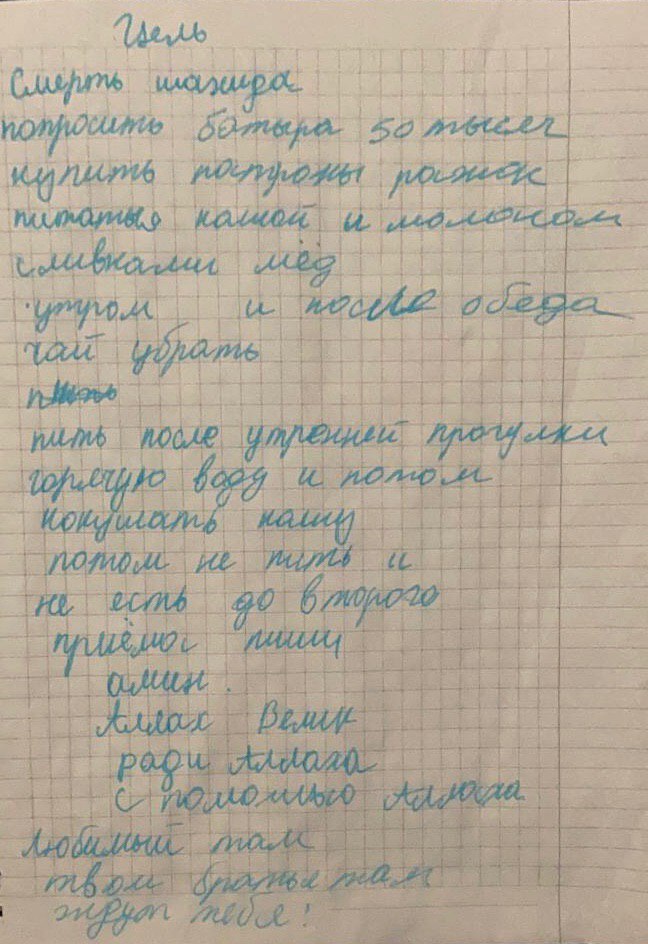 Цель
Смерть шахида
попросить батыра 50 тысяч
купить патроны рожок
питаться кашой и молоком
сливками мёд
утром и после обеда
чай убрать
пить после утренней прогулки
горячую воду и потом
покушать кашу
потом не пить и
не есть до второго
приёма пищи
амин.
Аллах Велик
ради Аллаха
с помощью Аллаха
Любимый там
твои братья там
ждут тебя!